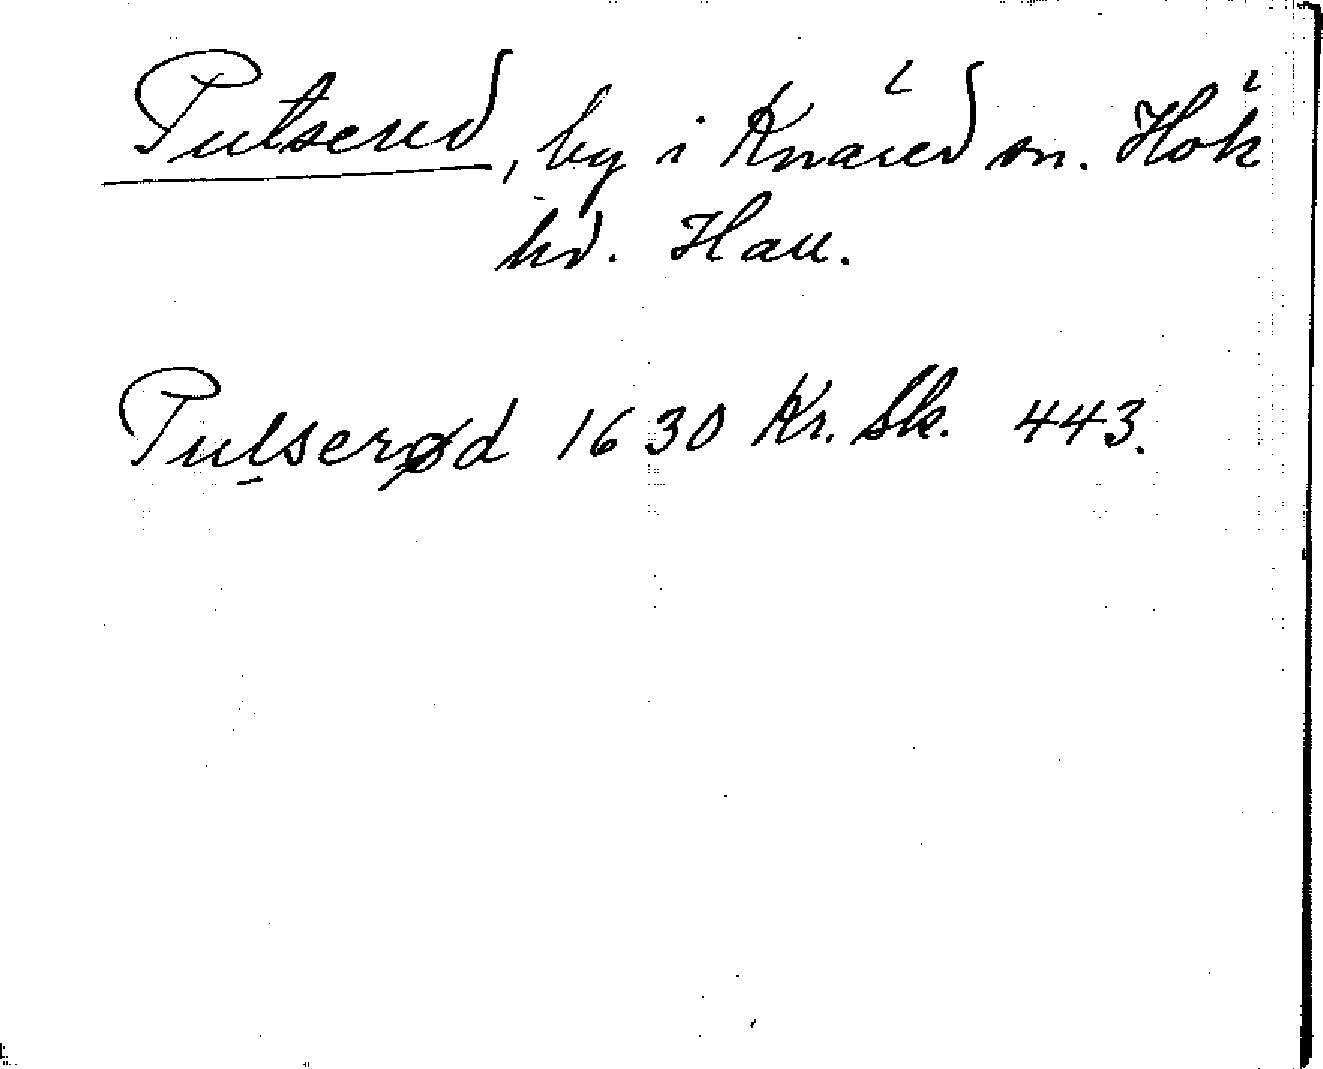 Putserud, by i Knäred sn. Hök
hd. Hall.
Pulserød 1630 Kr. Sk. 443.